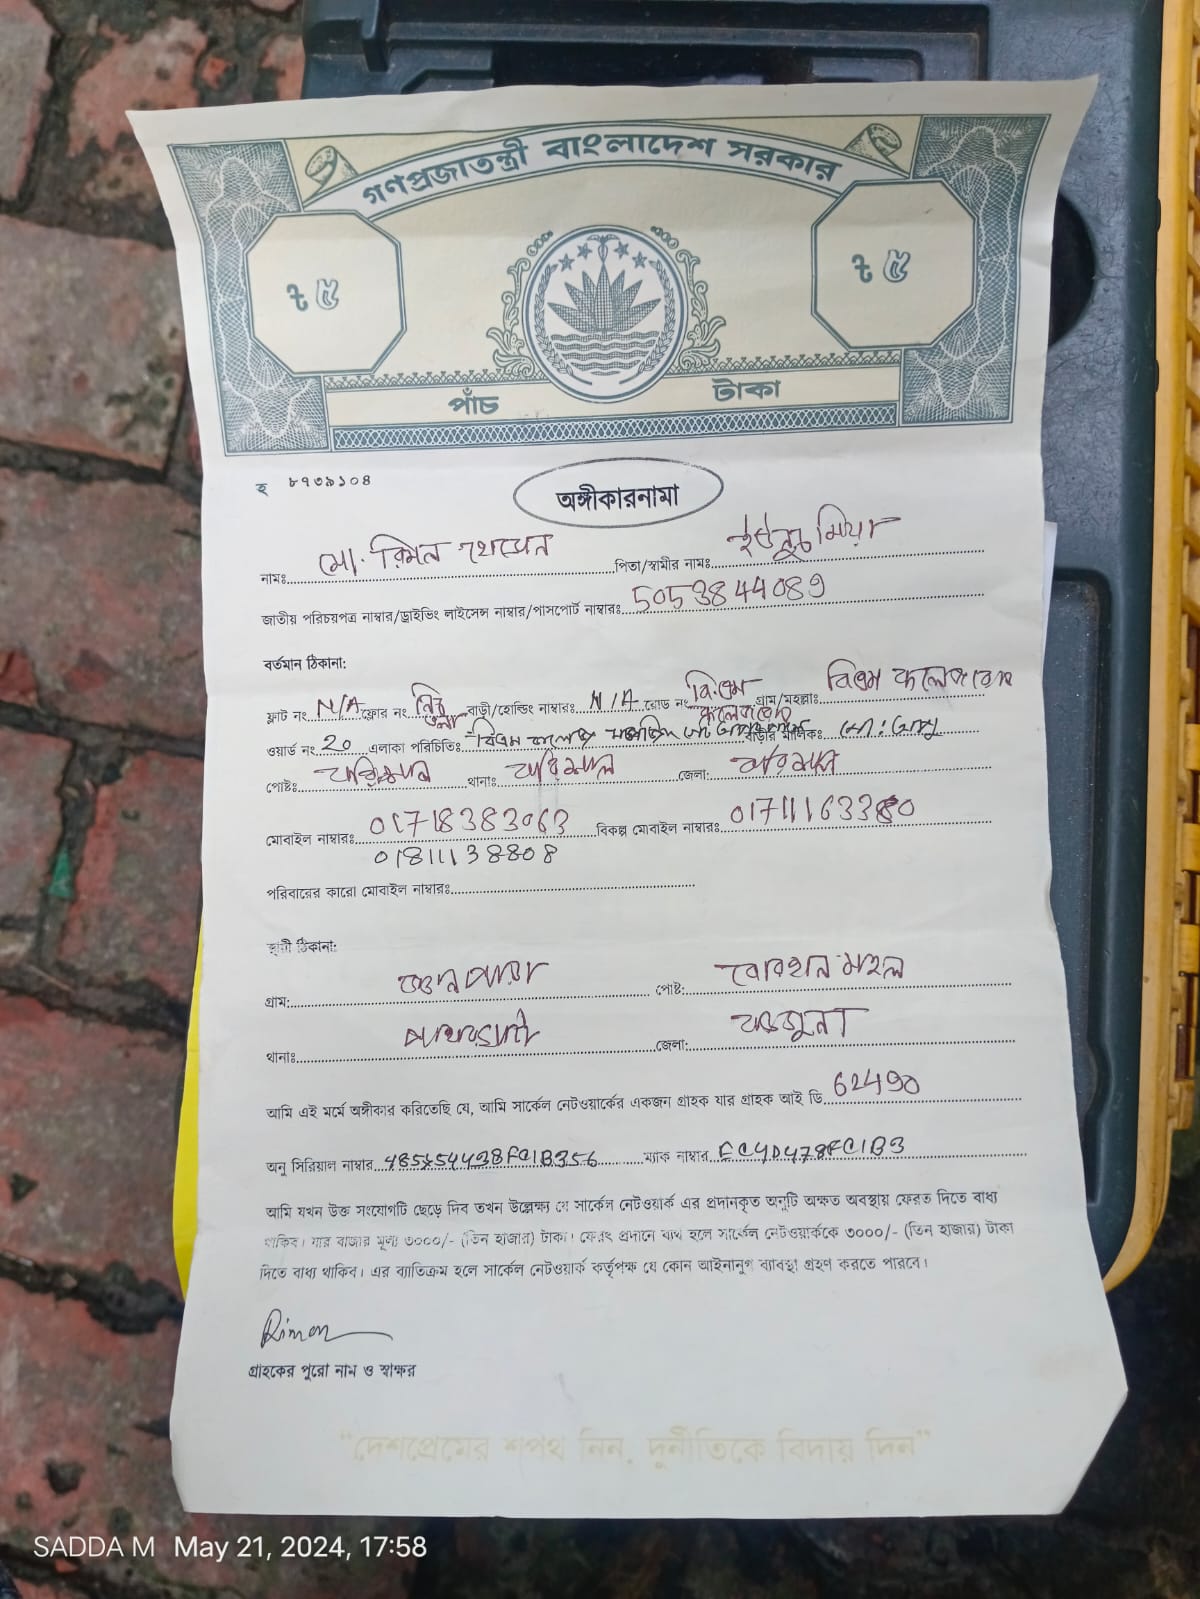 গণপ্রজাতন্ত্রী বাংলাদেশ সরকার
৳ ৫ ৳ ৫
পাঁচ টাকা
হ ৮৭৩৯১০৪
অঙ্গীকারনামা
নামঃ মো. রিমন হোসেন পিতা/স্বামীর নামঃ মিয়া
জাতীয় পরিচয়পত্র নাম্বার/ড্রাইভিং লাইসেন্স নাম্বার/পাসপোর্ট নাম্বারঃ 5053844089
বর্তমান ঠিকানা:
ফ্লাট নং N/A ফ্লোর নং নিচ তলা বাড়ী/হোল্ডিং নাম্বারঃ N/A রোড নং বি.এম কলেজ রোড গ্রাম/মহল্লাঃ বিএম কলেজ রোড
ওয়ার্ড নং 20 এলাকা পরিচিতিঃ বিএম কলেজ মসজিদ বাড়ীর মালিকঃ মো:
পোষ্টঃ বরিশাল থানাঃ বরিশাল জেলা: বরিশাল
মোবাইল নাম্বারঃ 01718383063 বিকল্প মোবাইল নাম্বারঃ 01711163380
01811138808
পরিবারের কারো মোবাইল নাম্বারঃ
স্থায়ী ঠিকানা:
গ্রাম: পোষ্ট: মহল
থানাঃ জেলা: বরগুনা
আমি এই মর্মে অঙ্গীকার করিতেছি যে, আমি সার্কেল নেটওয়ার্কের একজন গ্রাহক যার গ্রাহক আই ডি 62490
অনু সিরিয়াল নাম্বার ম্যাক নাম্বার
আমি যখন উক্ত সংযোগটি ছেড়ে দিব তখন উল্লেক্ষ যে সার্কেল নেটওয়ার্ক এর প্রদানকৃত অনুটি অক্ষত অবস্থায় ফেরত দিতে বাধ্য
থাকিব। যার বাজার মূল্য ৩০০০/- (তিন হাজার) টাকা। ফেরৎ প্রদানে ব্যর্থ হলে সার্কেল নেটওয়ার্ককে ৩০০০/- (তিন হাজার) টাকা
দিতে বাধ্য থাকিব। এর ব্যাতিক্রম হলে সার্কেল নেটওয়ার্ক কর্তৃপক্ষ যে কোন আইনানুগ ব্যাবস্থা গ্রহণ করতে পারবে।
Rimon
গ্রাহকের পুরো নাম ও স্বাক্ষর
"দেশপ্রেমের শপথ নিন, দুর্নীতিকে বিদায় দিন"
SADDA M May 21, 2024, 17:58